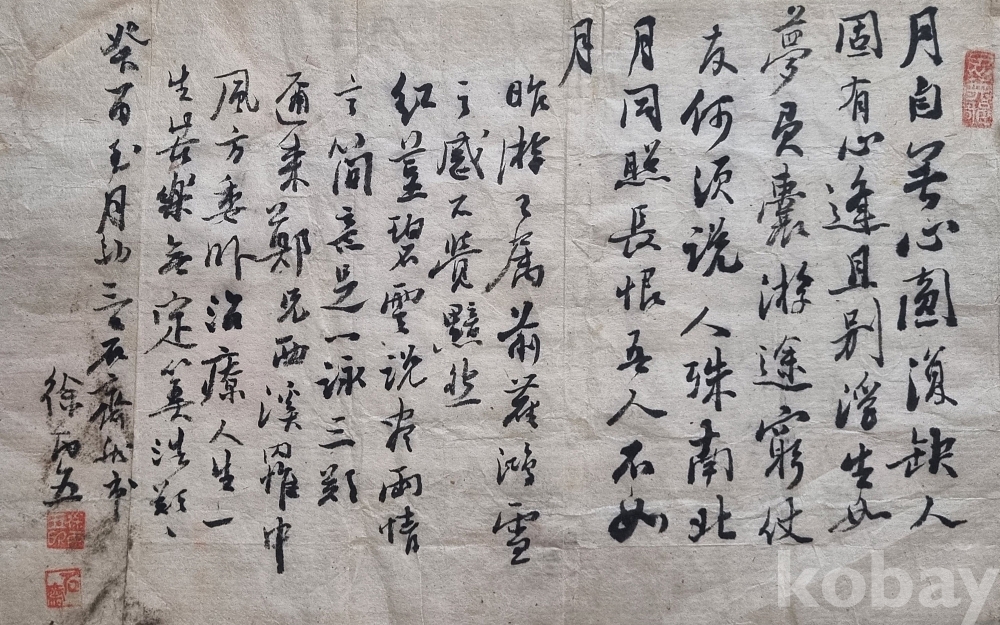 月自無心圓復缺人
固有心逢且別浮生如
夢負囊游途窮仗
友何須說人殊南北
月同照長恨吾人不如
月
昨游了屬前茬鴻雪
之感不覺黯然
紅荳碧雲說春雨情
言簡意足一詠三歎
適來鄭兄西溪罹中
風方委卧治療人生一
生苦樂無定算浩歎
癸酉玉月初三石齋
徐炳五
kobay